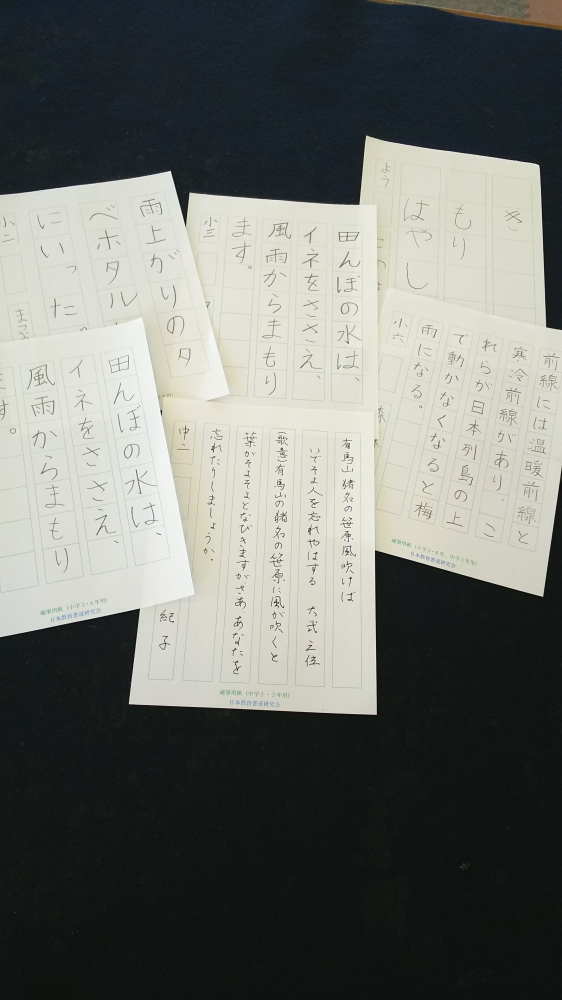 き
もり
はやし
よう
田んぼの水は、
イネをささえ、
風雨からまもり
ます。
小三
雨上がりの夕
べホタル
にいった。
小二
前線には温暖前線と
寒冷前線があり、こ
れらが日本列島の上
で動かなくなると梅
雨になる。
小六
硬筆用紙(小学5・6年、中学1年用)
日本教育書道研究会
有馬山 猪名の笹原風吹けば
いでそよ人を忘れやはする 大弐三位
(歌意)有馬山の猪名の笹原に風が吹くと
葉がそよそよとなびきますがさああなたを
忘れたりしましょうか。
中二
紀子
硬筆用紙(中学2・3年用)
日本教育書道研究会
田んぼの水は、
イネをささえ、
風雨からまもり
ます。
硬筆用紙(小学3・4年用)
日本教育書道研究会